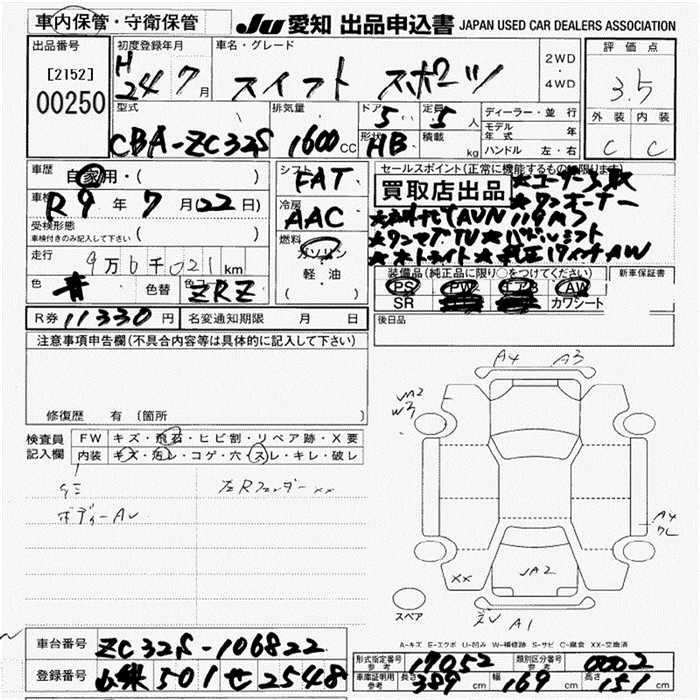 車内保管・守衛保管
JU 愛知 出品申込書 JAPAN USED CAR DEALERS ASSOCIATION
出品番号
[2152]
00250
初度登録年月
H 24 7月
車名・グレード
スイフト スポーツ
2WD
・
4WD
評価点
3.5
外装 内装
C C
型式
CBA-ZC32S
排気量
1600cc
ドア 5
形状 HB
定員 5人
積載 kg
ディーラー・並行
モデル年式 年
ハンドル 左・右
車歴
自家用・( )
車検
R9年7月22日)
受検形態
車検付きのみ記入して下さい ( )
走行
9万6千021km
色
青
色替
ZRZ
シフト
FAT
冷房
AAC
燃料
ガソリン
軽・油
( )
セールスポイント(正常に機能するもの限ります)
買取店出品
★ユーザー買取
★ワンオーナー
★ワンセグTV★パドルシフト
★オートライト★純正17インチAW
装備品(純正品に限り○をつけてください)
PS PW エアB AW
SR カワシート
新車保証書
後日品
R券 11330円
名変通知期限 月 日
注意事項申告欄(不具合内容等は具体的に記入して下さい)
修復歴 有(箇所 )
検査員
記入欄
FW キズ・飛石・ヒビ割・リペア跡・X要
内装 キズ・汚レ・コゲ・穴・スレ・キレ・破レ
ボディーAU
左Rフェンダーxx
A4 A3
W3
A4
JA2
XX
A1
スペア
A-キズ E-エクボ U-凹み W-補修跡 S-サビ C-腐食 XX-交換済
車台番号
ZC32S-106822
登録番号
501せ2548
形式指定番号
参考
17052
類別区分番号
参考
0002
車庫証明用
参考
長さ 389cm
幅 169cm
高さ 151cm